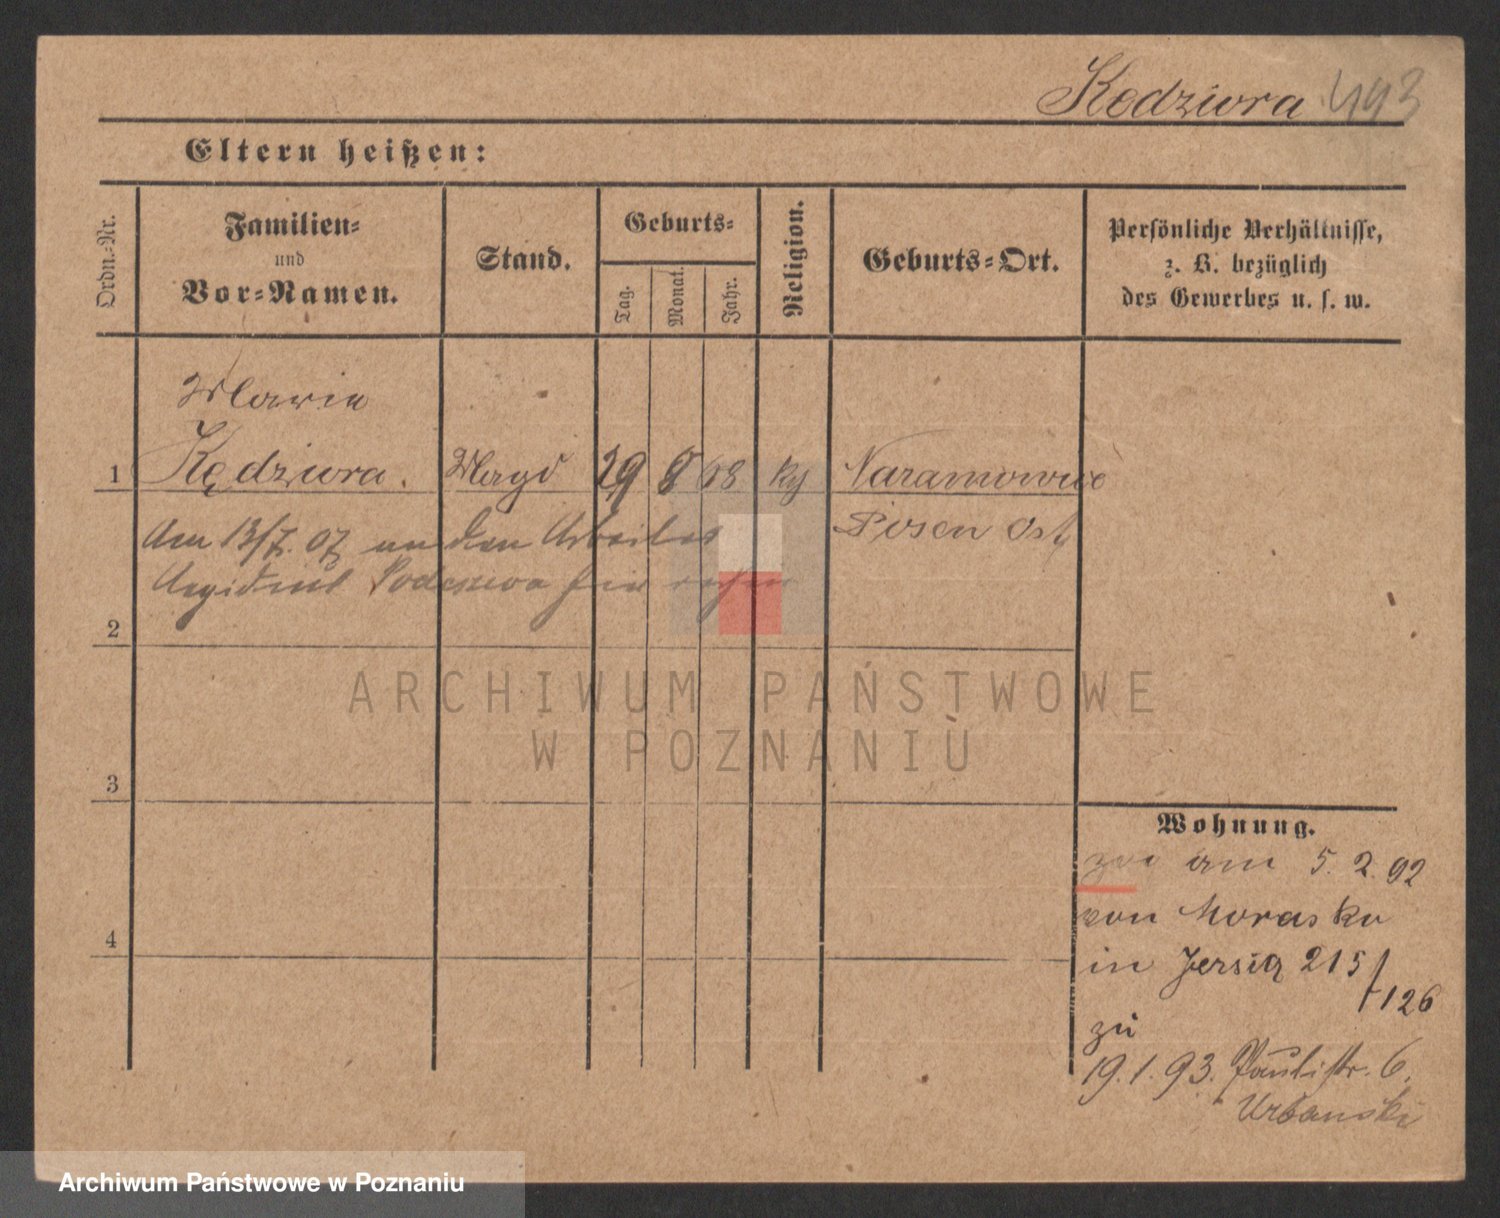 Kedziora 493
Eltern heißen:
Ordn.-Nr.
Familien-
und
Vor-Namen.
Stand.
Geburts-
Tag.
Monat.
Jahr.
Religion.
Geburts-Ort.
Persönliche Verhältnisse,
z. B. bezüglich
des Gewerbes u. s. w.
Marie
1 Kędziora. Magd 29 8 68 Naramowice
Am 13/7. 07 an den Arbeiter Posen Ost
Aegidius
2
ARCHIWUM PAŃSTWOWE
W POZNANIU
3
Wohnung.
am 5. 2. 92
von Morasko
4
in Jersiq 215/126
zu
19. 1. 93. Paulistr. 6.
Urbanski
Archiwum Państwowe w Poznaniu